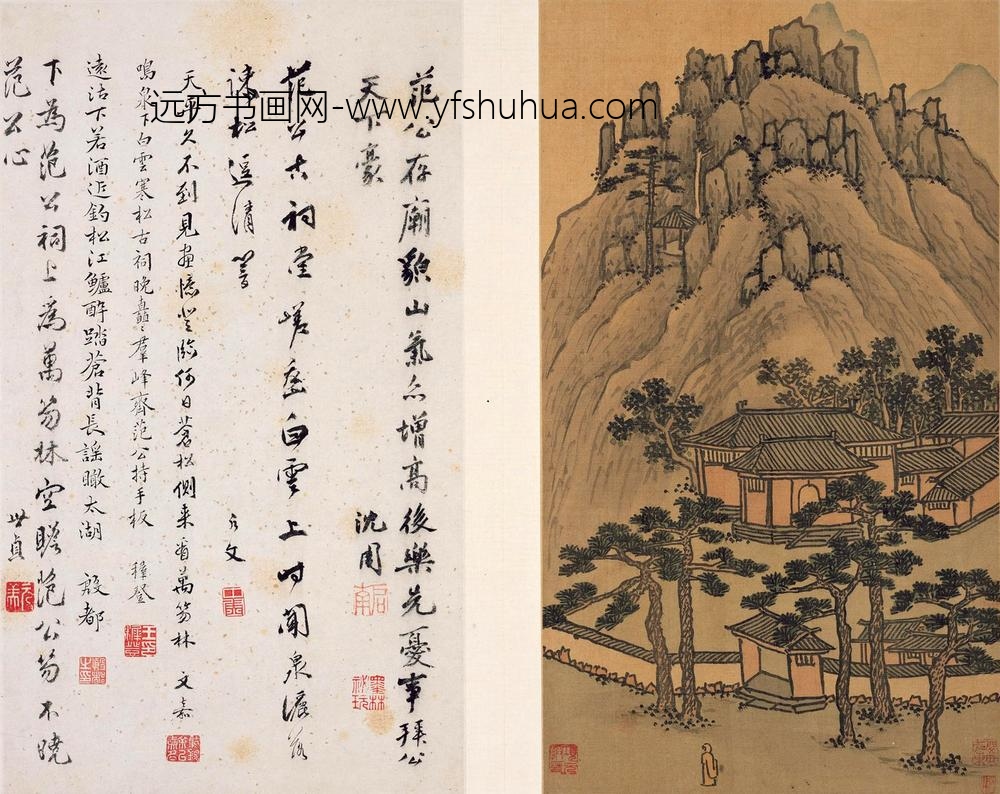 范公存廟貌山氣亦增高後樂先憂事拜公
天下豪
沈周
范公古祠堂嵯峨白雲上时聞泉漲落
謖松逗清響
允文
天平久不到見畫憶登臨何日蒼松側来看萬笏林 文嘉
鳴泉下白雲寒松古祠晚矗〻羣峰齊范公持手板 穉登
遠沽下若酒近釣松江鱸醉踏蒼背長謡瞰太湖 殷都
下為范公祠上為萬笏林空瞻范公笏不曉
范公心
世貞
远方书画网-www.yfshuhua.com